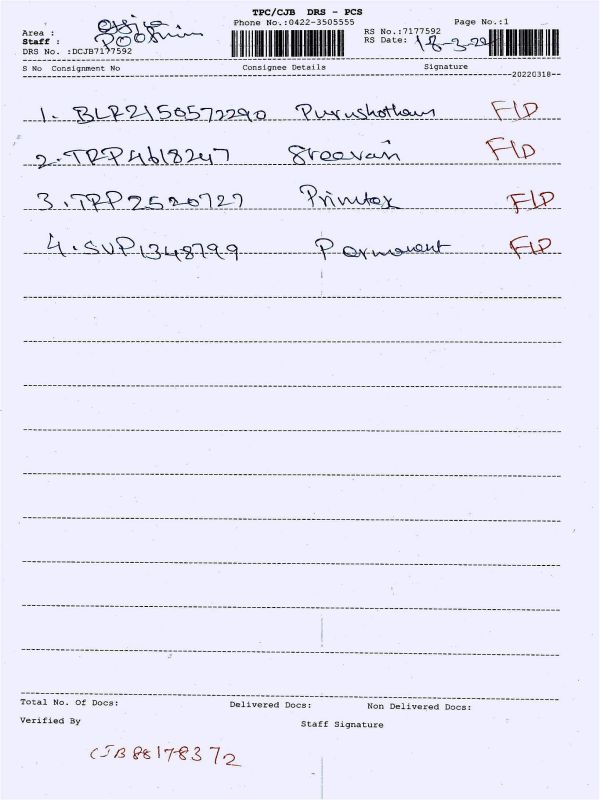 TPC/CJB DRS - PCS
Phone No.:0422-3505555
Page No.:1
Area :
Staff :
DRS No. :DCJB7177592
RS No.:7177592
RS Date: 18-3-22
S No Consignment No Consignee Details Signature
--20220318--
1. BLR2150572290 Purushotham F/D
2. TRP4618247 Sreevan F/D
3. TRP2520727 Printex F/D
4. SVP1348799 Permanent F/D
Total No. Of Docs: Delivered Docs: Non Delivered Docs:
Verified By Staff Signature
CJB88178372